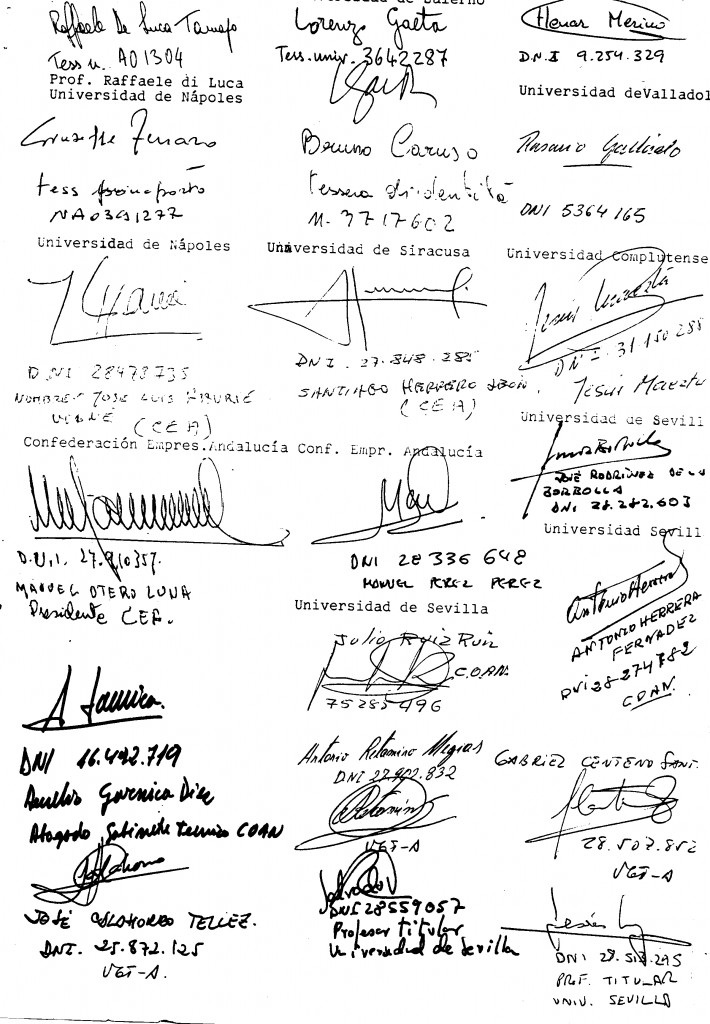 Raffaele De Luca Tamajo
Tess n. A01304
Prof. Raffaele di Luca
Universidad de Nápoles
Lorenzo Gaeta
Tess. univ. 3642287
Henar Merino
D.N.I 9.254.329
Universidad deValladol
Giuseppe Ferraro
tess
NA0391277
Universidad de Nápoles
Bruno Caruso
tessera di identità
N. 3717602
Universidad de Siracusa
Rosario Gallardo
DNI 5364165
Universidad Complutense
D.NI 28473735
NOMBRE: JOSE LUIS
(CEA)
Confederación Empres.Andalucía
DNI. 27.848.285
SANTIAGO HERRERO LEON.
(CEA)
Conf. Empr. Andalucía
Jesús Maeztu
DNI. 31.150.288
Jesús Maeztu
Universidad de Sevill
JOSÉ RODRÍGUEZ DE LA
BORBOLLA
DNI 28.282.603
Universidad Sevill
D.N.I. 27.910357.
MANUEL OTERO LUNA
Presidente CEA.
DNI 28 336 648
MANUEL PEREZ PEREZ
Universidad de Sevilla
Antonio Herrera
ANTONIO HERRERA
FERNADEZ
DNI 28-274782
COAN.
Julio Ruiz Ruiz
C.OAN.
75285496
A. Garnica.
DNI 16.492.719
Aurelio Garnica Díez
Abogado Gabinete Tecnico COAN
Antonio Retamino Megias
DNI 27.902.832
UGT-A
GABRIEL CENTENO SANT.
28.507.852
UGT-A
JOSÉ CALAHORRO TELLEZ.
DNI. 25.872.125
UGT-A.
DNI 28559057
Profesor titular
Universidad de Sevilla
DNI 28.518.295
PROF. TITULAR
UNIV. SEVILLA